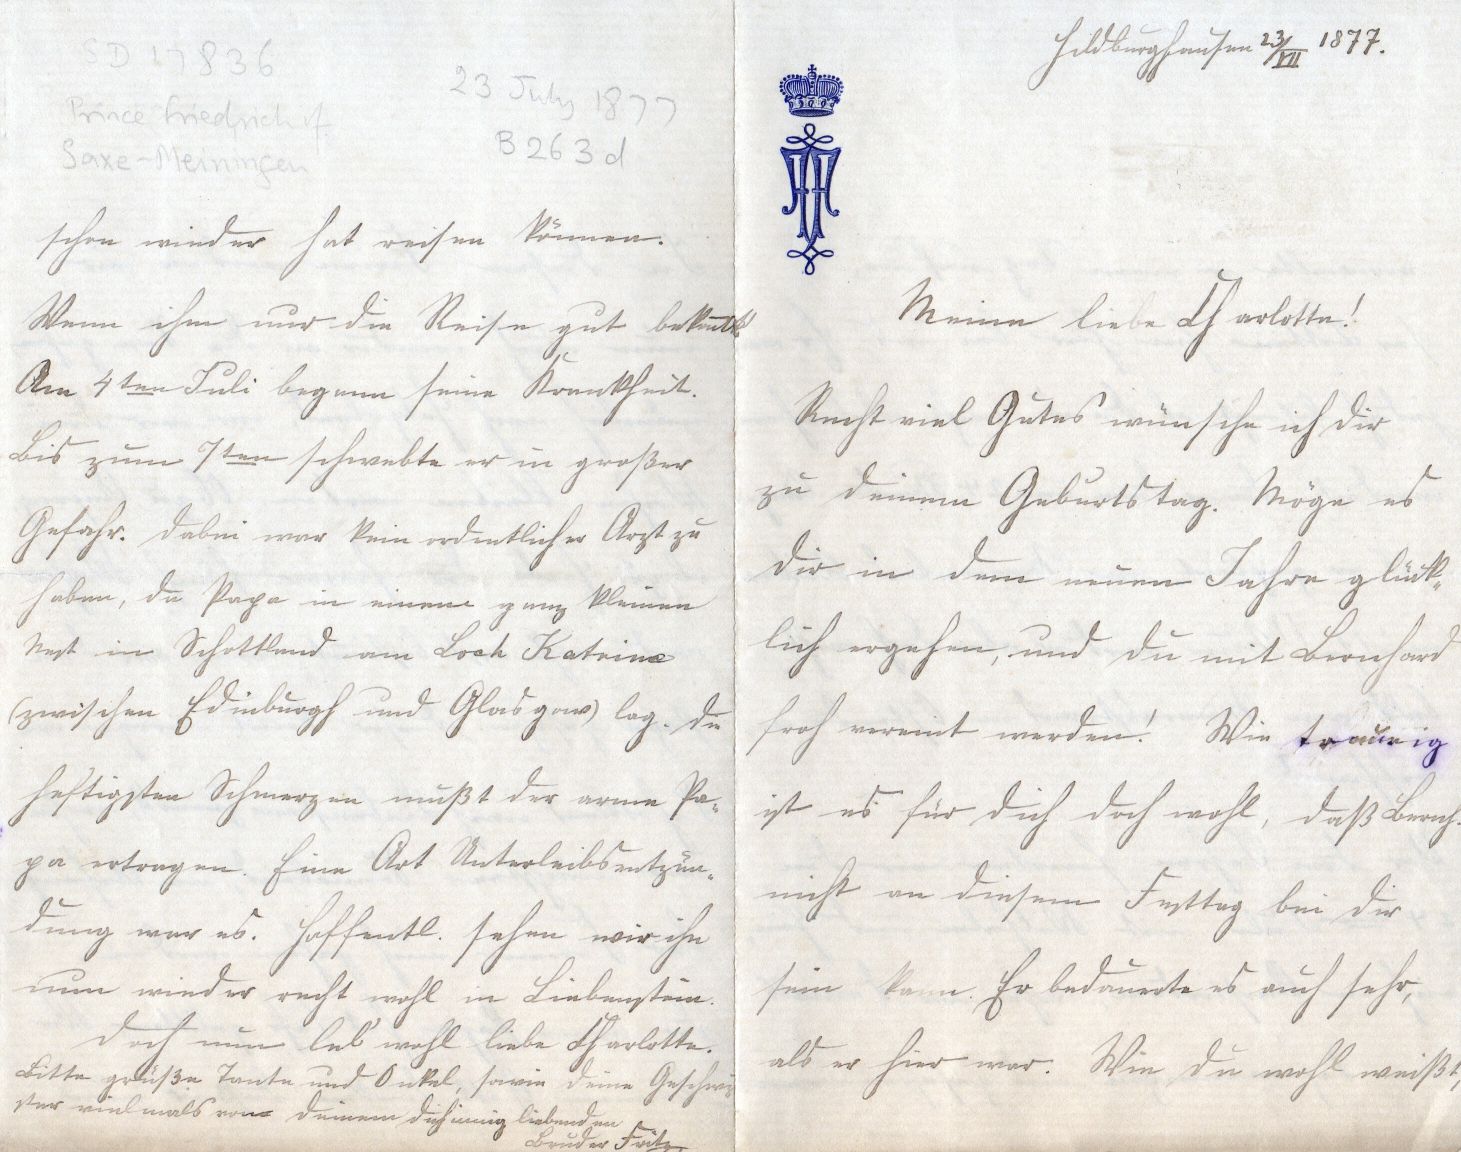 Hildburghausen 23/VII 1877.
Meine liebe Charlotte!
Recht viel Gutes wünsche ich dir
zu deinem Geburtstag. Möge es
dir in dem neuen Jahre glück-
lich ergehen, und du mit Bernhard
froh vereint werden! Wie traurig
ist es für dich doch wohl, daß Bernh.
nicht an diesem Festtag bei dir
sein kann. Er bedauerte es auch sehr,
als er hier war. Wie du wohl weißt,
SD 17836
Prince Friedrich of
Saxe-Meiningen
23 July 1877
B 263 d
schon wieder hat reisen können.
Wenn ihm nur die Reise gut
Am 4ten Juli begann seine Krankheit.
Bis zum 7ten schwebte er in großer
Gefahr. Dabei war kein ordentlicher Arzt zu
haben, da Papa in einem ganz kleinen
Nest in Schottland am Loch Katrine
(zwischen Edinburgh und Glasgow) lag. Die
heftigsten Schmerzen mußt der arme Pa-
pa ertragen. Eine Art Unterleibsentzün-
dung war es. Hoffentl. sehen wir ihn
nun wieder recht wohl in Liebenstein.
Doch nun leb' wohl liebe Charlotte.
Bitte grüße Tante und Onkel, sowie deine Geschwi-
ster vielmals von deinem dich innig liebenden
Bruder Fritz.